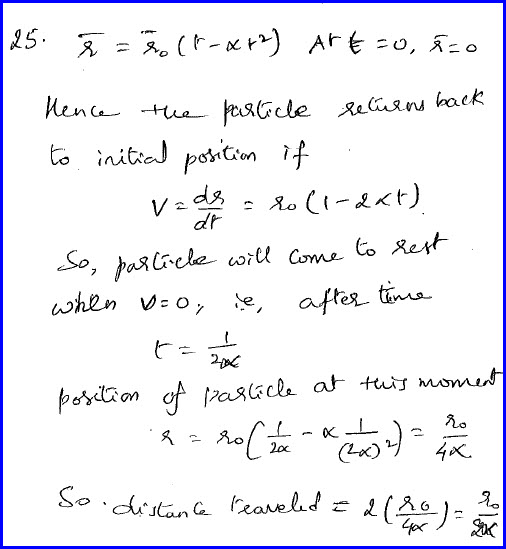 25. r̄ = r̄₀ (t - αt²) At t = 0, r̄ = 0
Hence the particle returns back
to initial position if
V = dr/dt = r₀ (1 - 2αt)
So, particle will come to rest
when v = 0, ie, after time
t = 1/2α
position of particle at this moment
r = r₀ (1/2α - α 1/(2α)²) = r₀/4α
So. distance traveled = 2 (r₀/4α) = r₀/2α